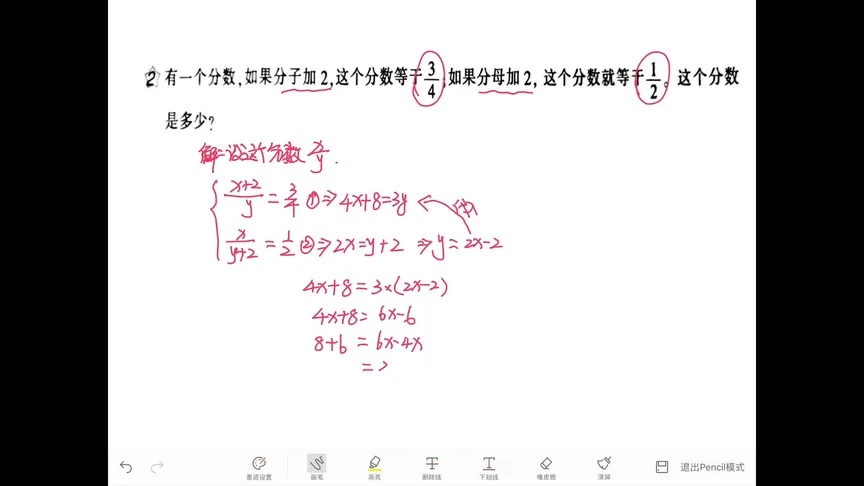 2 有一个分数,如果分子加2,这个分数等于3/4;如果分母加2,这个分数就等于1/2。这个分数
是多少?
解:设这个分数 x/y.
(x+2)/y = 3/4 ① ⇒ 4x+8=3y 代入
x/(y+2) = 1/2 ② ⇒ 2x=y+2 ⇒ y=2x-2
4x+8=3×(2x-2)
4x+8=6x-6
8+6=6x-4x
=
墨迹设置 画笔 荧光 删除线 下划线 橡皮擦 清屏 退出Pencil模式